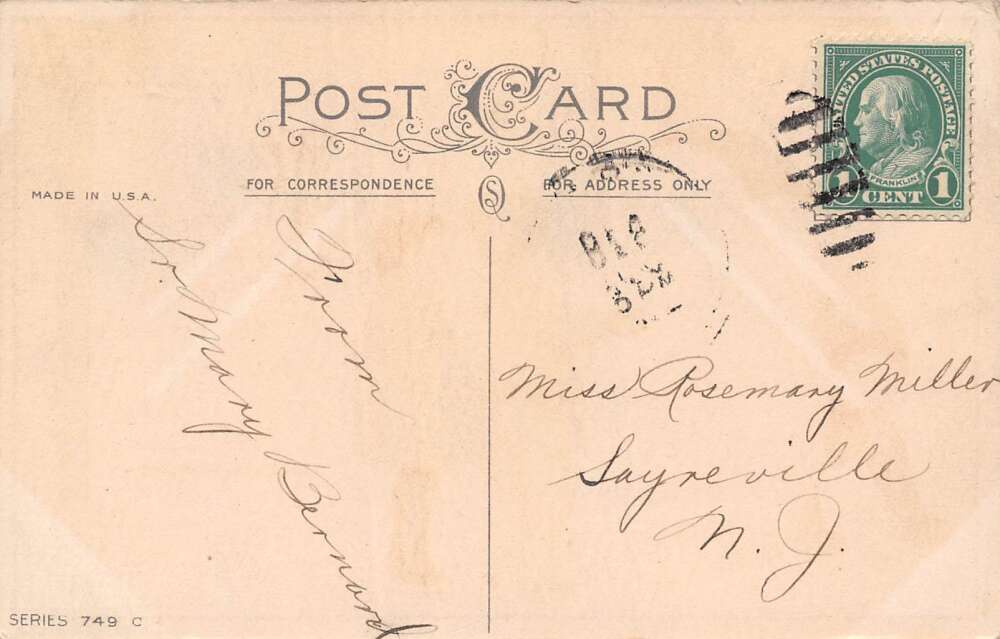 POST CARD
FOR CORRESPONDENCE
FOR ADDRESS ONLY
MADE IN U.S.A.
SQ
UNITED STATES POSTAGE
FRANKLIN
1 CENT 1
From
Sr Mary Bernard
Miss Rosemary Miller
Sayreville
N. J.
SERIES 749 C